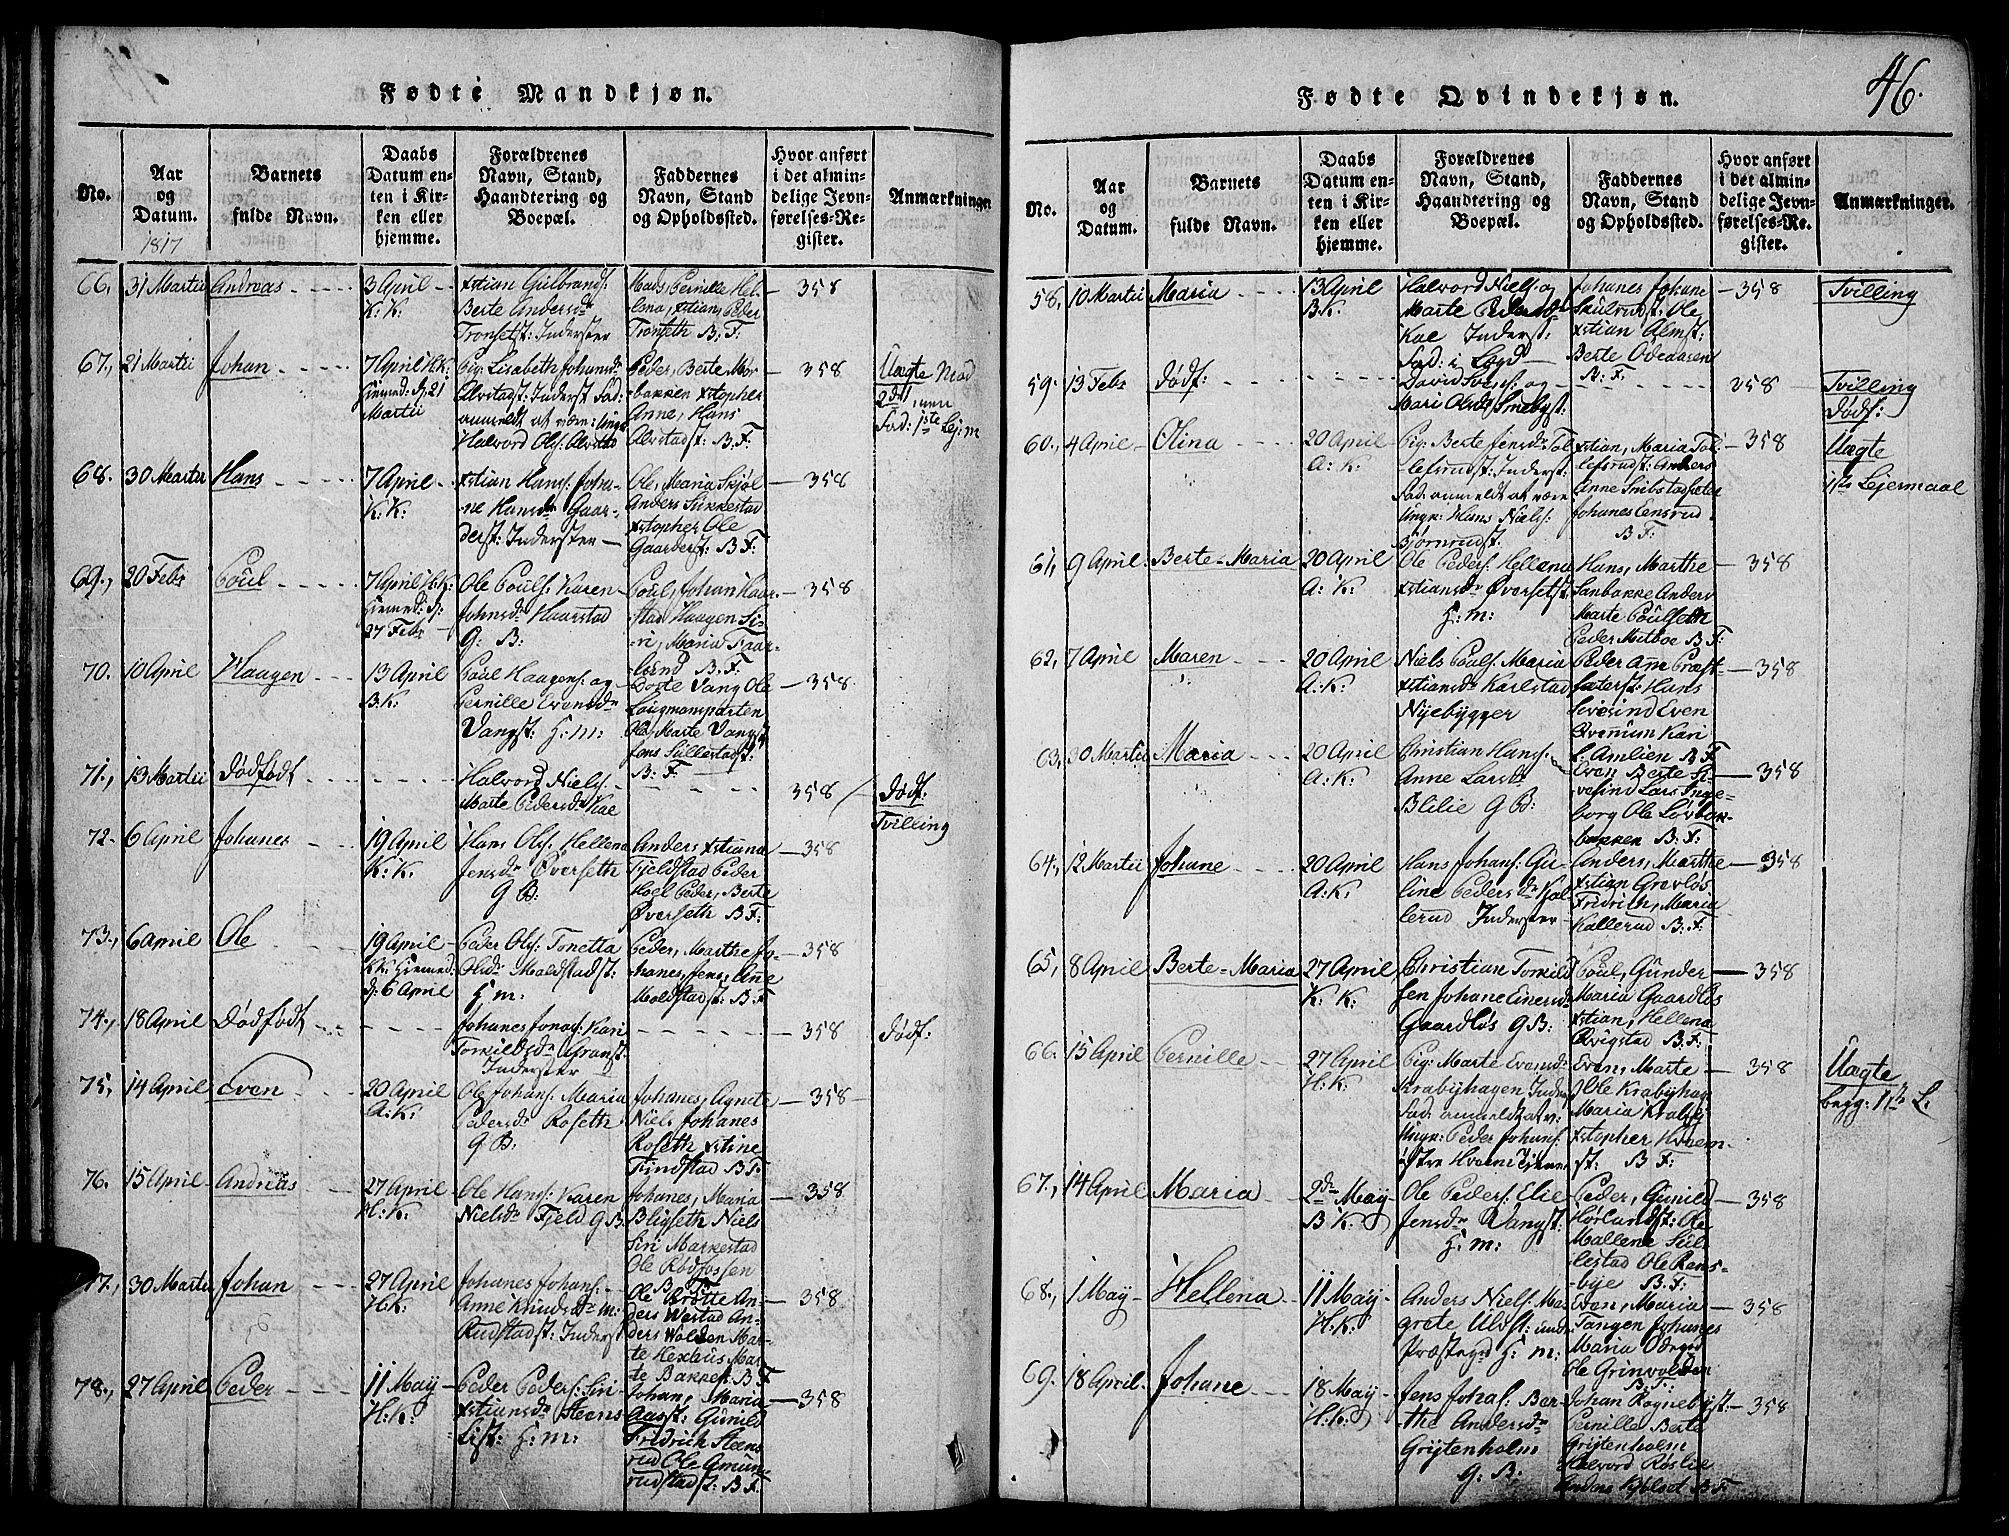 Fødte Mandkjøn.
No.
Aar
og
Datum.
1817
Barnets
fulde Navn.
Daabs
Datum en-
ten i Kir-
ken eller
hjemme.
Forældrenes
Navn, Stand,
Haandtering og
Boepæl.
Faddernes
Navn, Stand
og Opholdssted.
Hvor anført
i det almin-
delige Jevn-
førelses-Re-
gister.
Anmærkninger
66, 31 Martii Andreas
3 April
K: K:
Xstian Gulbrands:
Berte Andersdr
Tronsetst: Inderster
Mads Pernille Hel-
ena, Xstian, Peder
Tronseth B: F:
358
67, 21 Martii Johan
7 April K K:
hjemd: d: 21
Martii
Pig: Lisabeth Johansdr
Alvstadst: Inderst Fad:
anmeldt at være: Ungk
Halvord Ols: Alvstad
Peder, Berte Mør-
bakken Xstopher
Anne, Hans
Alvstadst: B: F:
358
Uægte Mod
2de
Fad: 1ste Lej: m
68. 30 Martii Hans
7 April
K: K:
Xstian Hans: Joha-
ne Hansdr Gaar-
derst: Inderster
Ole, Maria Skjøl
Anders Sukkestad
Xstopher Ole
Gaarderst: B F:
358
69, 20 Febr Poul
7 April K: K:
hjemd: d:
27 Febr
Ole Pouls: Karen
Johnsdr Haarstad
G: B:
Poul, Johan Haar-
stad Haagen Si-
ri, Maria Faar-
lund B: F:
358
70. 10 April Haagen
13 April
B: K:
Poul Haagens: og
Pernille Evensdr
Vangst: H: m:
Dorte Vang Ole
Laugmansparten
Ole, Marte Vangst
Jens Sullestadst:
B: F:
358
71, 13 Martii Dødfødt
Halvord Niels:
Marte Pedersdr Kae
358
Dødf:
Tvilling
72. 6 April Johanes
19 April
K: K:
Hans Ols: Hellena
Jensdr Øverseth
G B:
Anders Xstiana
Fjeldstad Peder
Hoel Peder, Berte
Øverseth B F:
358
73, 6 April Ole
19 April
KK: hjemd:
d: 6 April
Peder Ols: Tonetta
Olsdr Moldstadst:
H: m:
Peder, Marthe Jo-
hanes, Jens, Ane
Moldstadst: B: F
358
74, 18 April Dødfødt
Johanes Jonas: Kari
Tomildsdr Granst:
Inderster
358
Dødf:
75, 14 April Even
20 April
A: K:
Ole Johans: Maria
Pedersdr Roseth
G B:
Johanes, Agnete
Niels Johanes
Roseth Xstine
Findstad B F:
358
76. 15 April Andreas
27 April
H: K:
Ole Hans: Karen
Nielsdr Fjeld G B:
Johanes, Maria
Bligseth Niels
Siri Markestad
Ole Rødfossen
B: F:
358
77, 30 Martii Johan
27 April
H: K:
Johanes Johans:
Anne Knudsdr m:
Rudstadst: Inderst
Ole Brøtte An-
ders Westad An-
ders Wolden Mar-
te Hexhus Mar-
te Bakken B: F
358
78, 27 April Peder
11 May
H: K:
Peder Peders: Siri
Xstiansdr Steens
List: H: m:
Johan, Maria
Aasst: Gunild
Fridrich Steens
rud Ole Amun-
rudstadst: B F:
358
Fødte Qvindekjøn.
46.
No.
Aar
og
Datum.
Barnets
fulde Navn.
Daabs
Datum en-
ten i Kir-
ken eller
hjemme.
Forældrenes
Navn, Stand,
Haandtering og
Boepæl.
Faddernes
Navn, Stand
og Opholdssted.
Hvor anført
i det almin-
delige Jevn-
førelses-Re-
gister.
Anmærkninger.
58, 10 Martii Maria
13 April
B K:
Halvord Niels: og
Marte Pedersdr
Kae Inderst:
Fad: i Lægd
Johanes Johane
Skulrudst: Ole
Xstian Almst:
Berte Odeaasen
B: F:
358
Tvilling
59. 13 Febr Dødf:
David Svens: og
Mari Olsdr Smebyst:
358
Tvilling
Dødf:
60, 4 April Olina
20 April
A: K:
Pig: Berte Jensdr Tol-
lefsrudst: Inderst:
Fad: anmeldt at være
Ungk: Hans Niels:
Bjørnrudst:
Xstian, Maria Tol-
lefsrudst: Anders
Anne Snibstadsæter
Johanes Lensrud
B F:
358
Uægte
1ste Lejermaal
61, 9 April Berte-Maria
20 April
A: K:
Ole Peders: Hellena
Xstiansdr Øversetst
H: m:
Hans, Marthe
Sanbakke Anders
Marte Poulseth
Peder Mitboe B F:
358
62, 7 April Maren
20 April
A: K:
Niels Pouls: Maria
Xstiansdr Karlstad
Nyebygger
Peder Ane Præst-
sæterst: Hans
Sivesind Even
Qvenum Kari
L. Amlien B F
358
63, 30 Martii Maria
20 April
A: K:
Christian Hans:
Anne Larsdr
Blilie G B:
Even Berte Si-
vesind Lars Inge-
borg Ole Løvbor-
bakken B: F:
358
64, 12 Martii Johane
20 April
A: K:
Hans Johans: Gu-
line Pedersdr Kal-
lerud Inderster
Anders, Marthe
Xstian Grevløs
Fridrich, Maria
Kallerud B: F:
358
65, 8 April Berte-Maria
27 April
K: K:
Christian Tomild
sen Johane Einersdr
Gaardløs G B:
Poul, Gunder
Maria Gaardløs
Xstian, Hellena
Qvigstad B: F:
358
66. 15 April Pernille
27 April
H: K:
Pig: Marte Evensdr
Krabyhagen Inder
Fad: anmeldt at v:
Ungk: Peder Johans:
østre Hveem tjenen
Even, Marte
Ole Krabyhag
Maria Krabye
Xstopher Hveem-
st: B F:
358
Uægte
begg: 1ste L.
67, 14 April Maria
2de May
B K:
Ole Peders: Elie
Jensdr Vangst:
H: m:
Peder, Gunild
Hørlundst: Ole
Mallene Sul-
lestad Ole Rens-
bye B: F:
358
68, 1 May Hellena
11 May
H: K:
Anders Niels: Mar-
grete Ulvst: under
Præstegd H: m:
Even, Maria
Tangen Johanes
Maria Odegrd
Ole Grinvolden
B: F:
358
69. 18 April Johane
18 May
H: K:
Jens Johas: Ber-
the Andersdr
Grytenholm
G: B:
Johan Rognebyst:
Pernille Berte
Grytenholm
Halvord Roslie
B F
358